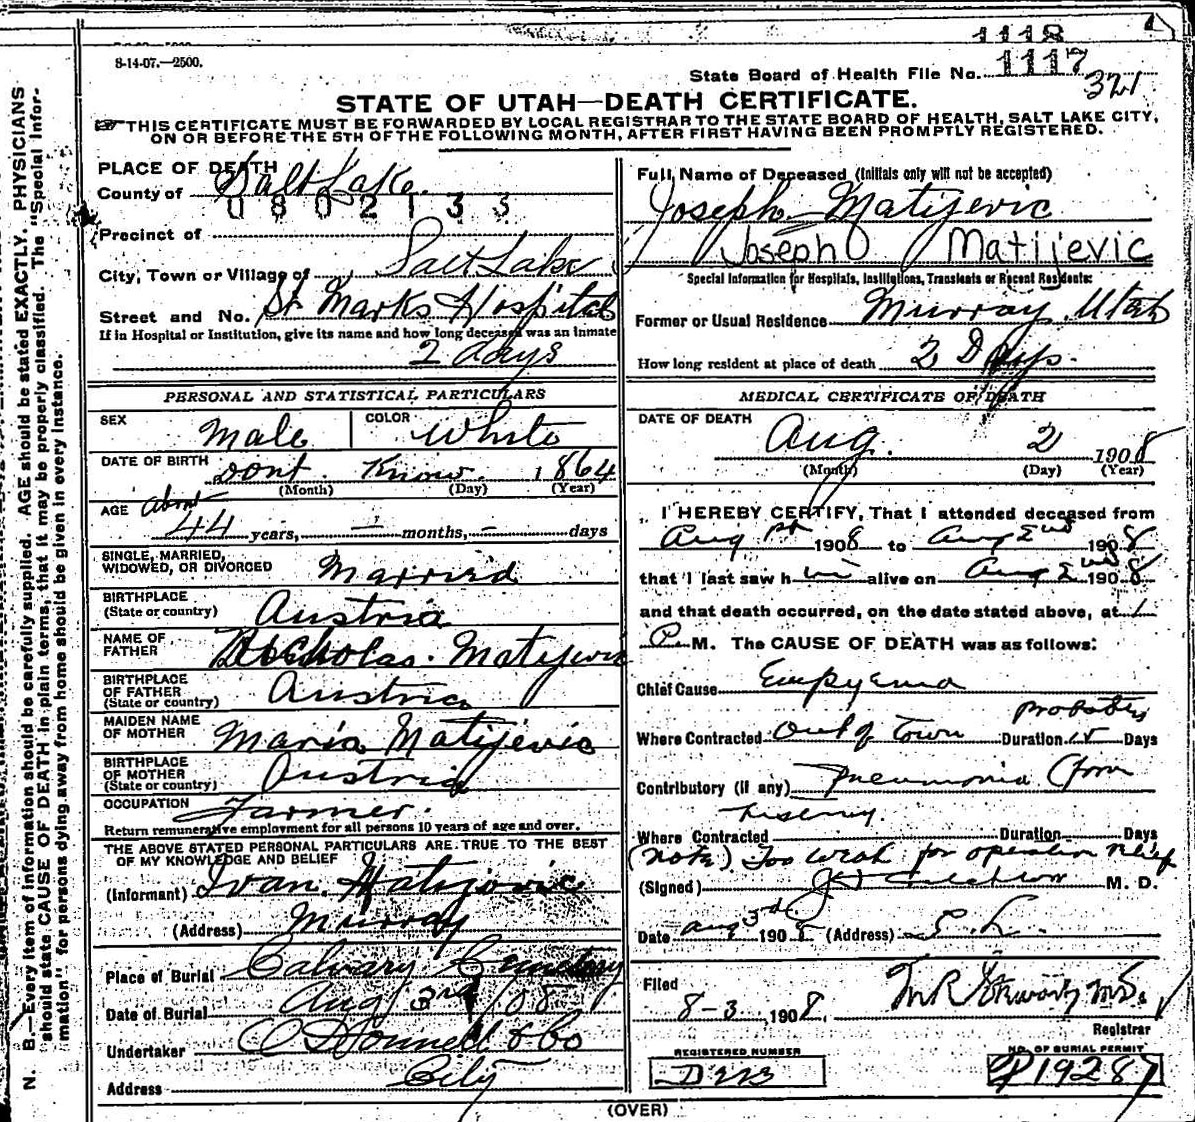 1118
8-14-07.—2500.
State Board of Health File No. 1117
321
STATE OF UTAH—DEATH CERTIFICATE.
THIS CERTIFICATE MUST BE FORWARDED BY LOCAL REGISTRAR TO THE STATE BOARD OF HEALTH, SALT LAKE CITY,
ON OR BEFORE THE 5TH OF THE FOLLOWING MONTH, AFTER FIRST HAVING BEEN PROMPTLY REGISTERED.
PLACE OF DEATH
County of Salt Lake.
0802133
Precinct of
City, Town or Village of Salt Lake
Street and No. St Marks Hospital
If in Hospital or Institution, give its name and how long deceased was an inmate
2 days
Full Name of Deceased (Initials only will not be accepted)
Joseph Matijevic
Joseph Matijevic
Special Information for Hospitals, Institutions, Transients or Recent Residents:
Former or Usual Residence Murray, Utah
How long resident at place of death 2 Days.
PERSONAL AND STATISTICAL PARTICULARS
SEX Male COLOR White
DATE OF BIRTH Dont Know 1864
(Month) (Day) (Year)
AGE About
44 years, — months, — days
SINGLE, MARRIED,
WIDOWED, OR DIVORCED Married
BIRTHPLACE
(State or country) Austria
NAME OF
FATHER Nicholas Matijevic
BIRTHPLACE
OF FATHER
(State or country) Austria
MAIDEN NAME
OF MOTHER Maria Matijevic
BIRTHPLACE
OF MOTHER
(State or country) Austria
OCCUPATION Farmer.
Return remunerative employment for all persons 10 years of age and over.
THE ABOVE STATED PERSONAL PARTICULARS ARE TRUE TO THE BEST
OF MY KNOWLEDGE AND BELIEF
(Informant) Ivan Matijovic
(Address) Murray
Place of Burial Calvary Cemetery
Date of Burial Aug 3rd /08
Undertaker O'Donnell & Co
Address City
MEDICAL CERTIFICATE OF DEATH
DATE OF DEATH
Aug. 2 1908
(Month) (Day) (Year)
I HEREBY CERTIFY, That I attended deceased from
Aug 1st 1908 to Aug 2nd 1908
that I last saw him alive on Aug 2nd 1908
and that death occurred, on the date stated above, at 1
P. M. The CAUSE OF DEATH was as follows:
Chief Cause Empyema
probably
Where Contracted Out of Town Duration 15 Days
Contributory (if any) Pneumonia (from
history.
Where Contracted Duration Days
(Note) Too weak for operation relief
(Signed) M. D.
Date Aug 3rd 1908 (Address) S. L.
Filed
8-3-, 1908.
Registrar
REGISTERED NUMBER
NO. OF BURIAL PERMIT
P19287
(OVER)
N. B.—Every item of information should be carefully supplied. AGE should be stated EXACTLY. PHYSICIANS
should state CAUSE OF DEATH in plain terms, that it may be properly classified. The "Special Infor-
mation" for persons dying away from home should be given in every instance.